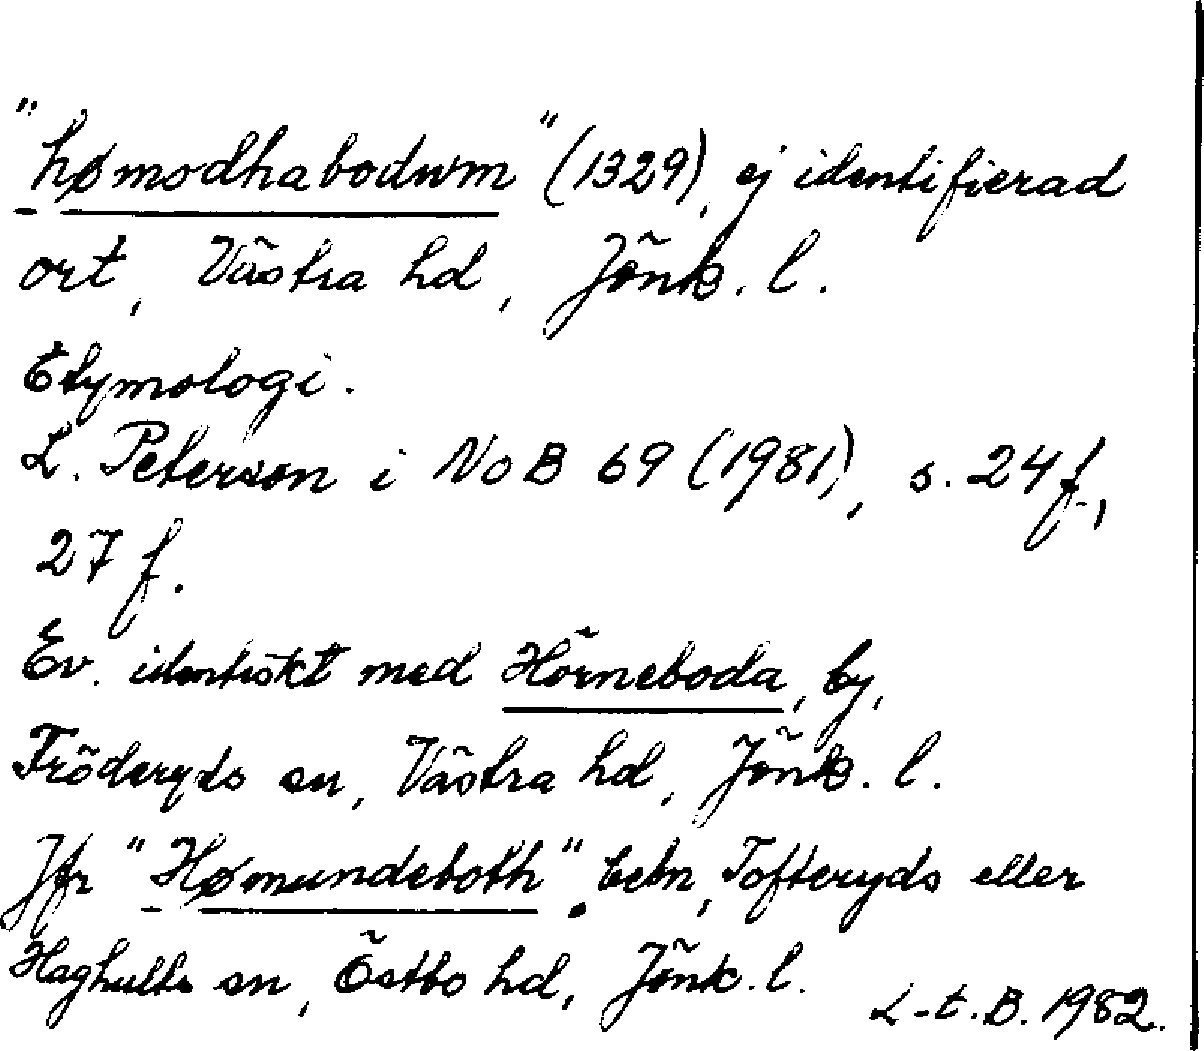 "hømodhabodum" (1329), ej identifierad
ort, Västra hd, Jönk. l.
Etymologi.
L. Peterson i NoB 69 (1981), s. 24 f.,
27 f.
Ev. identiskt med Hörneboda, by,
Fröderyds sn, Västra hd, Jönk. l.
Jfr "Hømundeboth", bebn, Tofteryds eller
Haghults sn, Östbo hd, Jönk. l.
L-t. B. 1982.